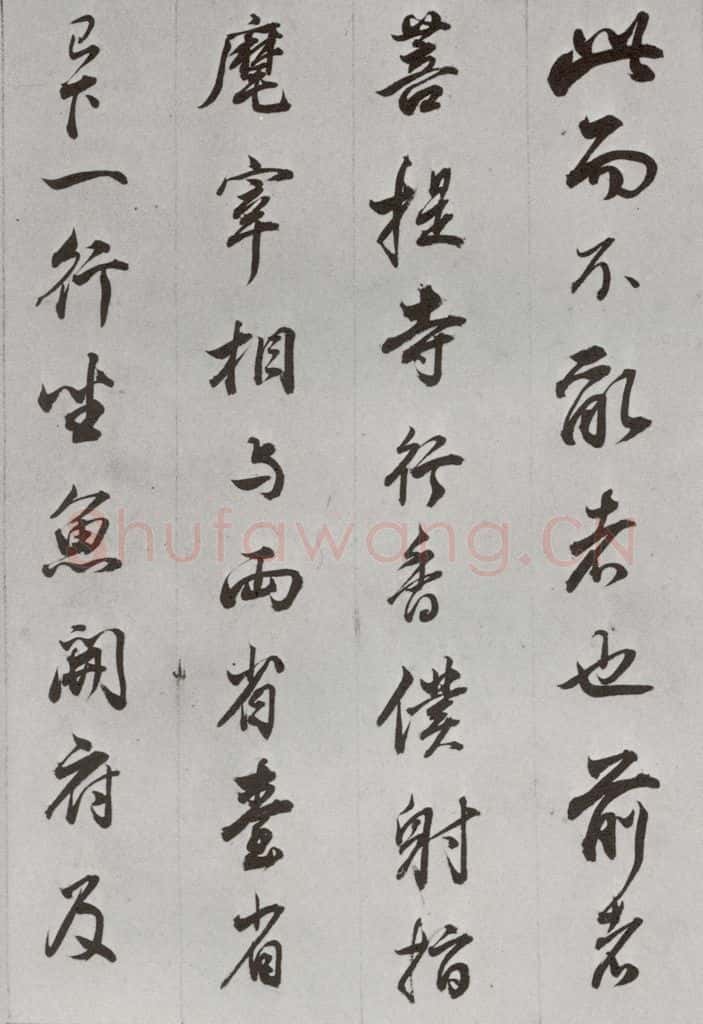 此而不能者也前者
菩提寺行香僕射指
麾宰相与兩省臺省
已下一行坐魚開府及
Shufawang.CN